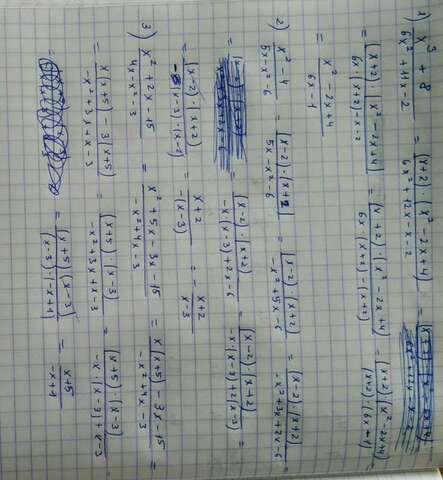 1) (x³ + 8)/(6x² + 11x - 2) = ((x+2) · (x² - 2x + 4))/(6x² + 12x - x - 2) =
= ((x+2) · (x² - 2x + 4))/(6x · (x+2) - x - 2) = ((x+2) · (x² - 2x + 4))/(6x · (x+2) - (x+2)) = ((x+2) · (x² - 2x + 4))/((x+2) · (6x - 1)) =
= (x² - 2x + 4)/(6x - 1)
2) (x² - 4)/(5x - x² - 6) = ((x-2) · (x+2))/(5x - x² - 6) = ((x-2) · (x+2))/(-x² + 5x - 6) = ((x-2) · (x+2))/(-x² + 3x + 2x - 6) =
= ((x-2) · (x+2))/(-x · (x-3) + 2x - 6) = ((x-2) · (x+2))/(-x · (x-3) + 2(x-3)) =
= ((x-2) · (x+2))/(-(x-3) · (x-2)) = (x+2)/(-(x-3)) = - (x+2)/(x-3)
3) (x² + 2x - 15)/(4x - x² - 3) = (x² + 5x - 3x - 15)/(-x² + 4x - 3) = (x · (x+5) - 3x - 15)/(-x² + 4x - 3) =
= (x · (x+5) - 3 · (x+5))/(-x² + 3x + x - 3) = ((x+5) · (x-3))/(-x² + 3x + x - 3) = ((x+5) · (x-3))/(-x · (x-3) + x - 3) =
= ((x+5) · (x-3))/((x-3) · (-x+1)) = (x+5)/(-x+1)